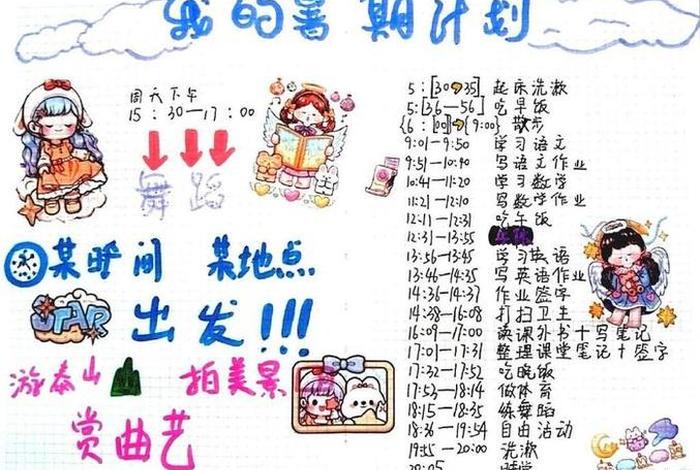 我的暑期计划
周天下午
15:30—17:00
舞蹈
某时间 某地点
STAR 出发!!!
游泰山 拍美景
赏曲艺
5:[30→35] 起床洗漱
5:[36—56] 吃早饭
{6:00→9:00} 散步
9:01—9:50 学习语文
9:51—10:40 写语文作业
10:41—11:20 学习数学
11:21—12:10 写数学作业
12:11—12:31 吃午饭
12:31—13:55
13:56—13:45 学习英语
13:46—14:35 写英语作业
14:36—14:37 作业签字
14:38—16:08 打扫卫生
16:09—17:00 读课外书+写笔记
17:01—17:31 整理课堂笔记+签字
17:32—17:52 吃晚饭
17:53—18:14 做体育
18:15—18:35 练舞蹈
18:36—19:54 自由活动
19:55—20:00 洗漱
20:05